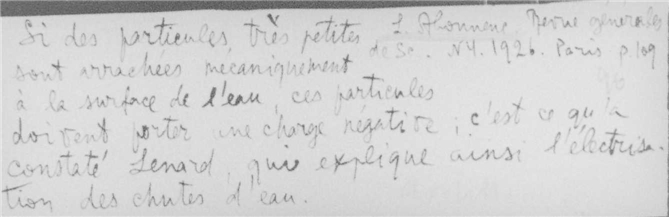 Si des particules très petites
L. Ahonnene Revue générales
de Sc. N4. 1926. Paris p. 109
sont arrachées mécaniquement
à la surface de l'eau, ces particules
doivent porter une charge négative; c'est ce qu'a
constaté Lenard, qui explique ainsi l'électrisa-
tion des chutes d'eau.